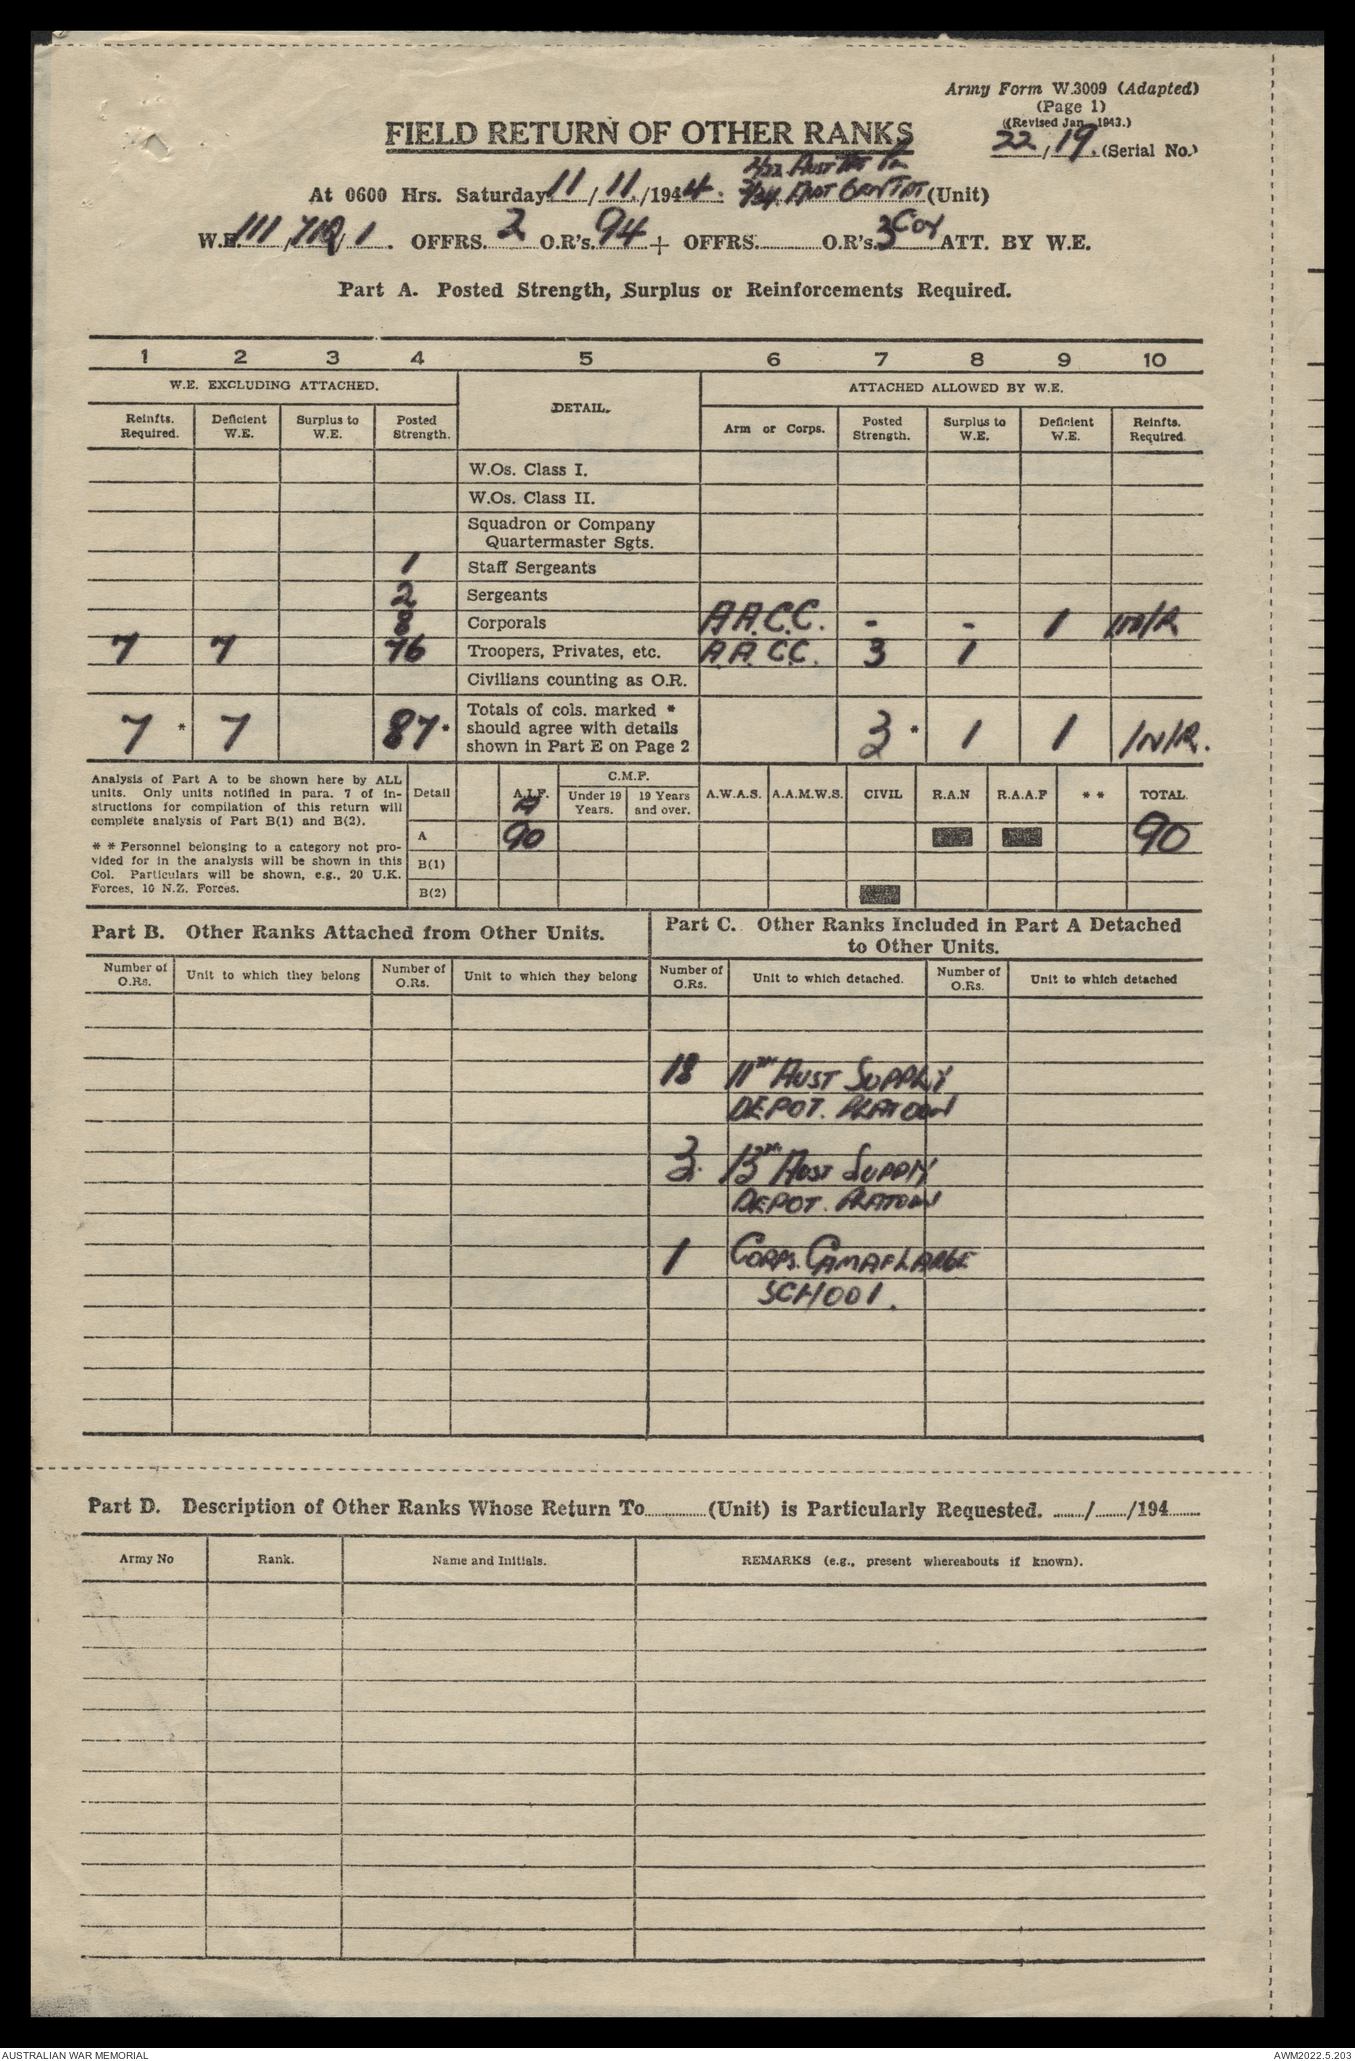 Army Form W.3009 (Adapted)
(Page 1)
((Revised Jan., 1943.)
22/19. (Serial No.)
FIELD RETURN OF OTHER RANKS
At 0600 Hrs. Saturday 11/11/1944. (Unit)
W.E. 111 / 1. OFFRS. 2 O.R's. 94 + OFFRS. O.R's. 3 ATT. BY W.E.
Part A. Posted Strength, Surplus or Reinforcements Required.
1 2 3 4 5 6 7 8 9 10
W.E. EXCLUDING ATTACHED. DETAIL. ATTACHED ALLOWED BY W.E.
Reinfts. Required. Deficient W.E. Surplus to W.E. Posted Strength. Arm or Corps. Posted Strength. Surplus to W.E. Deficient W.E. Reinfts. Required.
W.Os. Class I.
W.Os. Class II.
Squadron or Company
Quartermaster Sgts.
1 Staff Sergeants
2 Sergeants
8 Corporals A.A.C.C. - - 1 1N/R
7 7 76 Troopers, Privates, etc. A.A.C.C. 3 1
Civilians counting as O.R.
Totals of cols. marked *
should agree with details
shown in Part E on Page 2
7 * 7 87 * 3 * 1 1 1N/R.
Analysis of Part A to be shown here by ALL
units. Only units notified in para. 7 of in-
structions for compilation of this return will
complete analysis of Part B(1) and B(2).
* * Personnel belonging to a category not pro-
vided for in the analysis will be shown in this
Col. Particulars will be shown, e.g., 20 U.K.
Forces, 10 N.Z. Forces.
Detail A.I.F. C.M.F. Under 19 Years. 19 Years and over. A.W.A.S. A.A.M.W.S. CIVIL R.A.N R.A.A.F * * TOTAL.
A 90 90
B(1)
B(2)
Part B. Other Ranks Attached from Other Units.
Part C. Other Ranks Included in Part A Detached
to Other Units.
Number of O.Rs. Unit to which they belong Number of O.Rs. Unit to which they belong Number of O.Rs. Unit to which detached. Number of O.Rs. Unit to which detached
18 11TH AUST SUPPLY
DEPOT. PLATOON
3. 13TH AUST SUPPLY
DEPOT. PLATOON
1 CORPS. CAMAFLARGE
SCHOOL.
Part D. Description of Other Ranks Whose Return To (Unit) is Particularly Requested. / /194
Army No Rank. Name and Initials. REMARKS (e.g., present whereabouts if known).
AUSTRALIAN WAR MEMORIAL
AWM2022.5.203